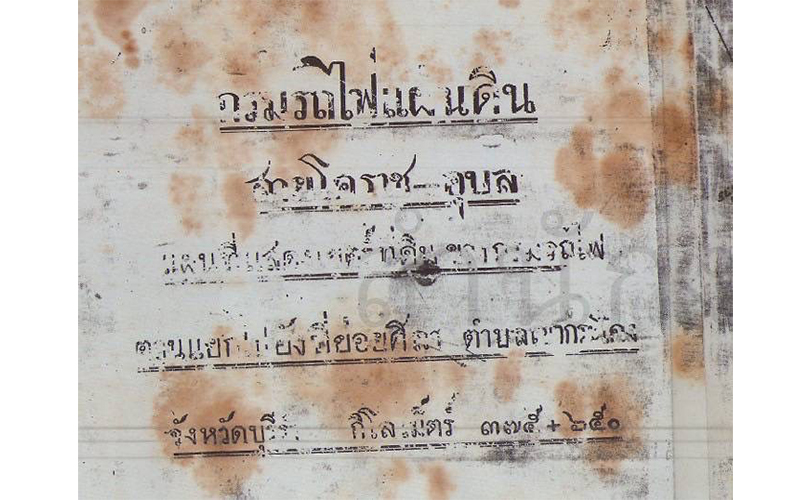 กรมรถไฟแผ่นดิน
สายโคราช-อุบล
แผนที่แสดงเขตร์ที่ดินของกรมรถไฟ
ตอนแยกไปยังที่ย่อยศิลา ตำบลเขากระโดง
จังหวัด กิโลเม็ตร์ ๓๗๕ + ๖๕๐